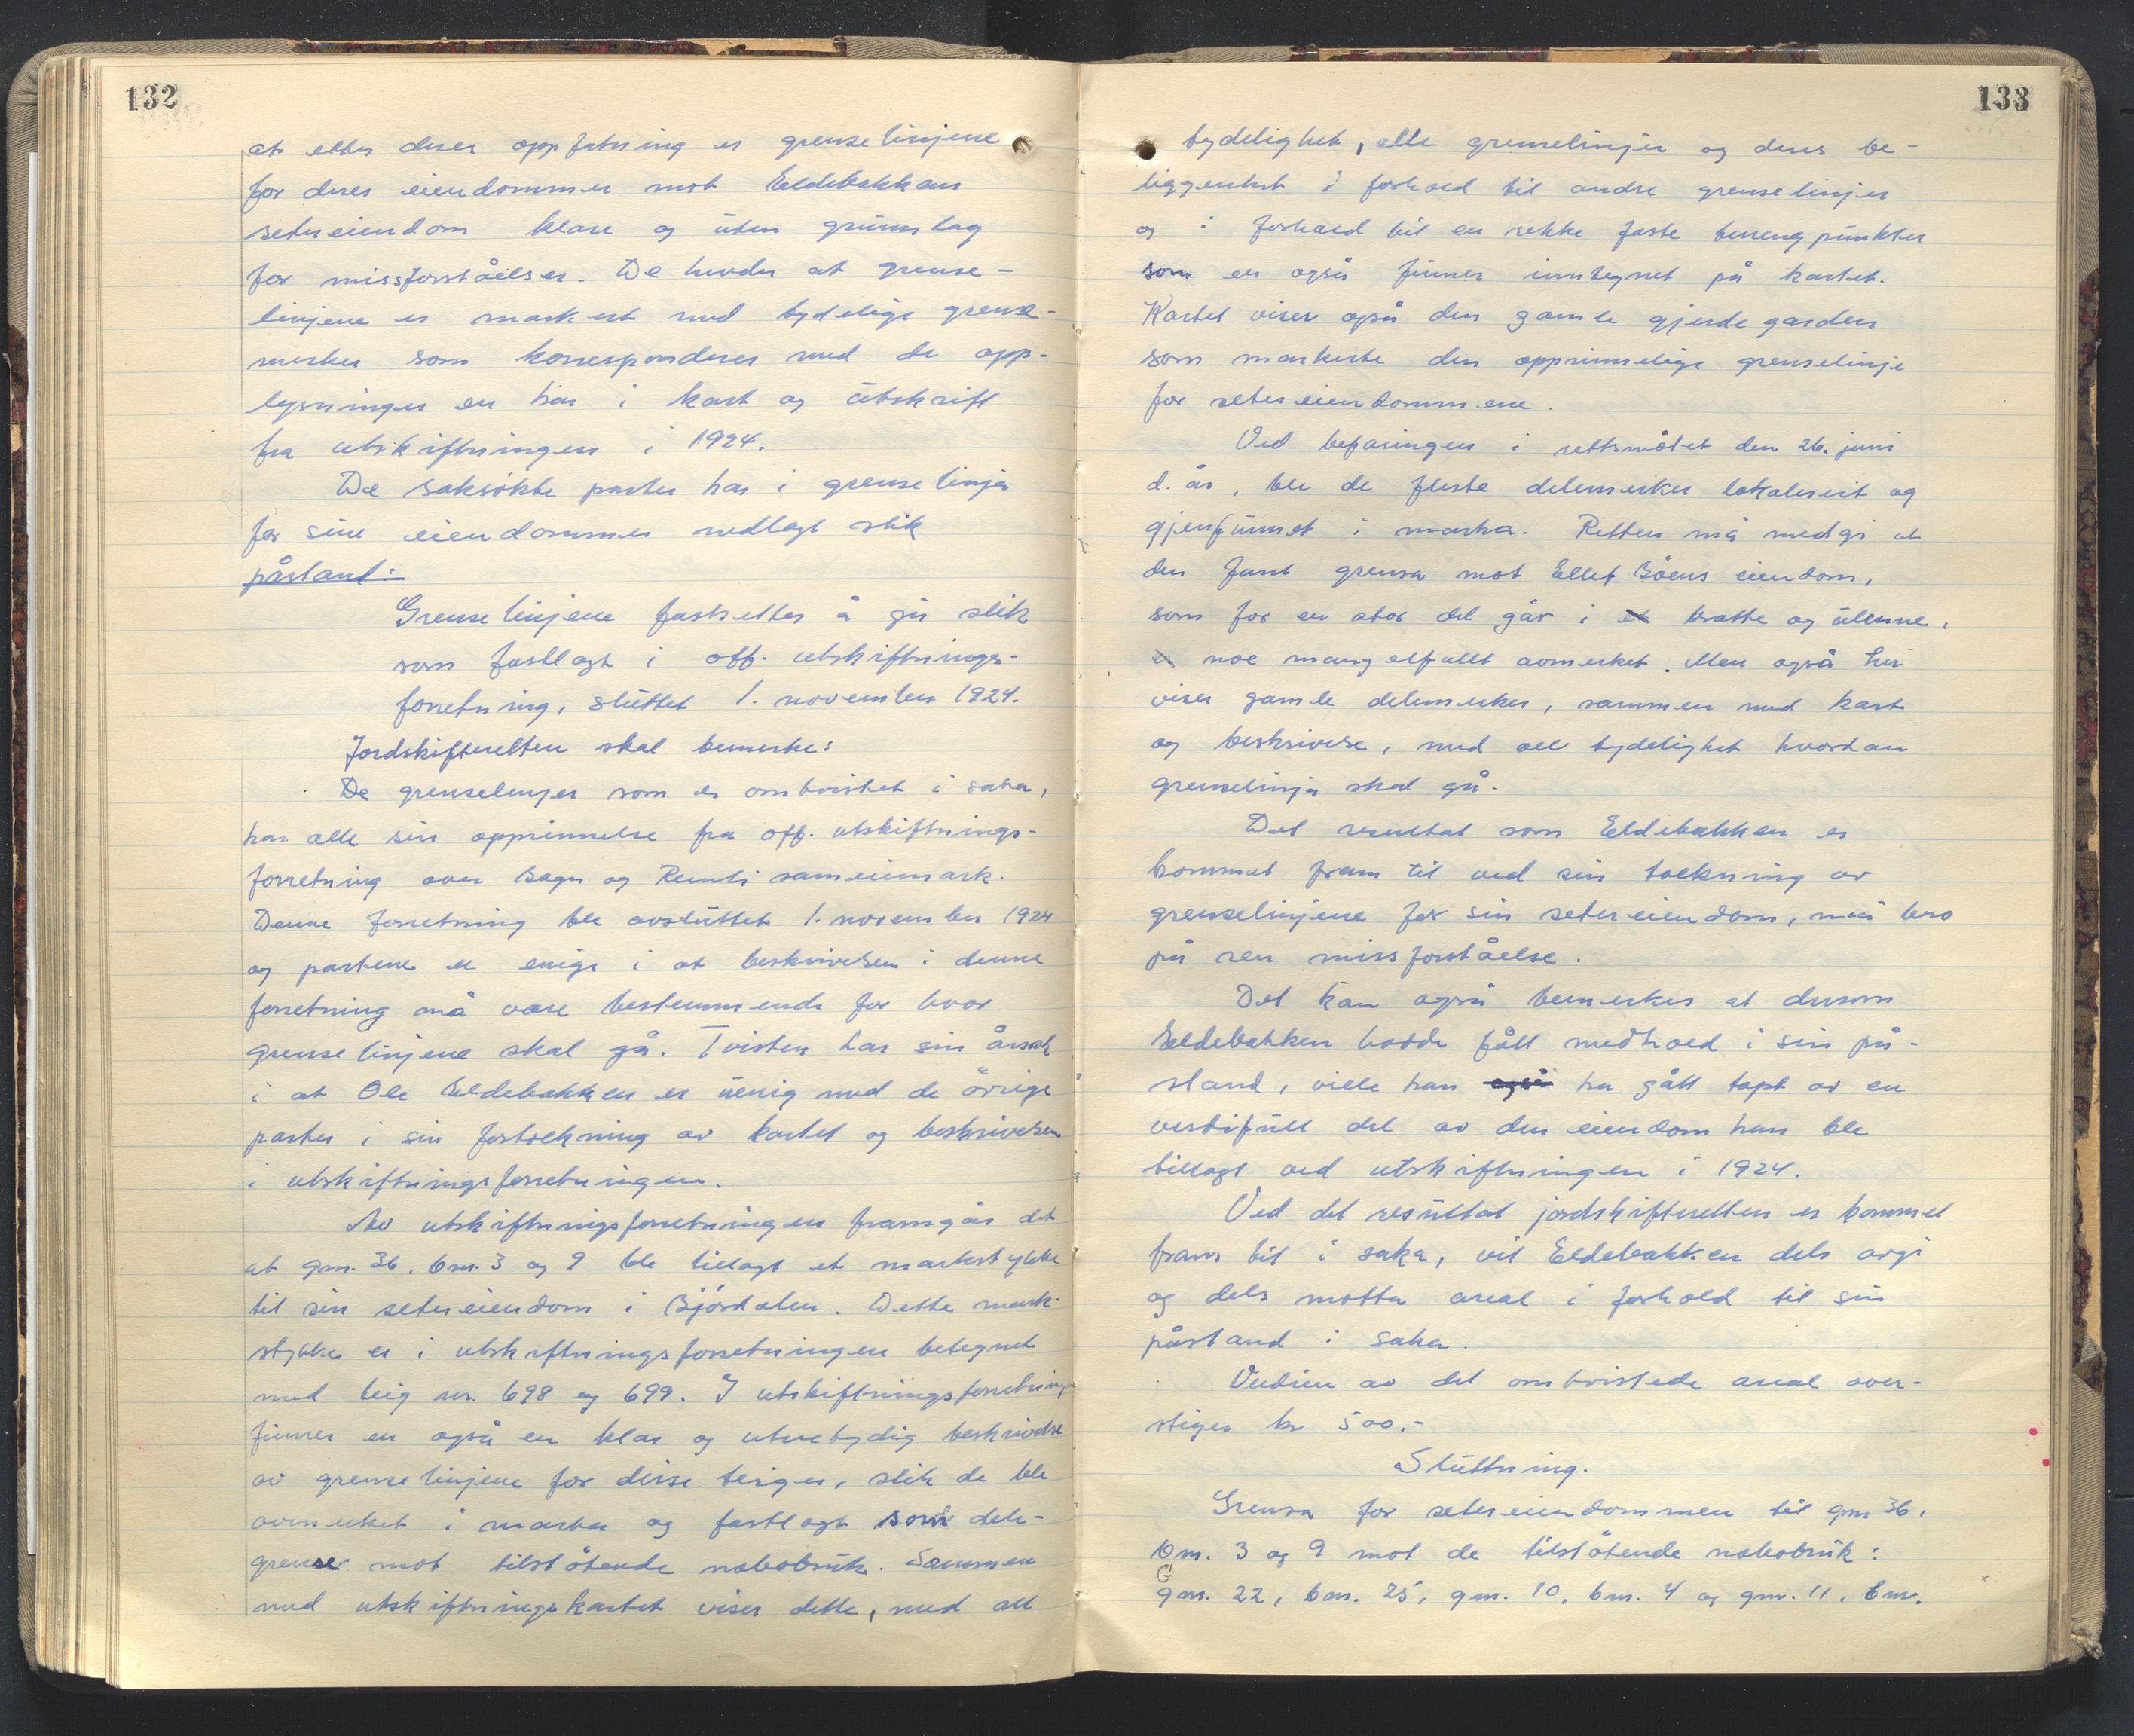 132
at etter deres oppfatning er grenselinjene
for deres eiendommer mot Eldebakkens
setereiendom klare og uten grunnlag
for missforståelser. De hevder at grense-
linjene er markert med tydelige grense-
merker som korresponderer med de opp-
lysninger en har i kart og utskrift
fra utskiftningen i 1924.
De saksøkte parter har i grenselinja
for sine eiendommer nedlagt slik
påstand:
Grenselinjene fastsettes å gå slik
som fastlagt i off. utskiftnings-
forretning, sluttet 1. november 1924.
Jordskifteretten skal bemerke:
De grenselinjer som er omtvistet i saka,
har alle sin opprinnelse fra off. utskiftnings-
forretning over Bagn og Reinli sameiemark.
Denne forretning ble avsluttet 1. november 1924
og partene er enige i at beskrivelsen i denne
forretning må være bestemmende for hvor
grenselinjene skal gå. Tvisten har sin årsak
i at Ole Eldebakken er uenig med de øvrige
parter i sin fortolkning av kartet og beskrivelsen
i utskiftningsforretningen.
Av utskiftningsforretningen framgår det
at gnr. 36, bnr. 3 og 9 ble tillagt et markstykke
til sin setereiendom i Bjørdalen. Dette mark-
stykke er i utskiftningsforretningen betegnet
med teig nr. 698 og 699. I utskiftningsforretningen
finner en også en klar og utvetydig beskrivelse
av grenselinjene for disse teiger, slik de ble
avmerket i marka og fastlagt som dele-
grenser mot tilstøtende nabobruk. Sammen
med utskiftningskartet viser dette, med all
133
tydelighet, alle grenselinjer og deres be-
liggenhet i forhold til andre grenselinjer
og i forhold til en rekke faste terrengpunkter
som en også finner inntegnet på kartet.
Kartet viser også den gamle gjerdegarden
som markerte den opprinnelige grenselinje
for setereiendommene.
Ved befaringen i rettsmøtet den 26. juni
d. år, ble de fleste delemerker lokalisert og
gjenfunnet i marka. Retten må medgi at
den fant grensa mot Ellef Bøens eiendom,
som for en stor del går i bratte og ulenne,
noe mangelfullt avmerket. Men også her
viser gamle delemerker, sammen med kart
og beskrivelse, med all tydelighet hvordan
grenselinja skal gå.
Det resultat som Eldebakken er
kommet fram til ved sin tolkning av
grenselinjene for sin setereiendom, må bero
på ren missforståelse.
Det kan også bemerkes at dersom
Eldebakken hadde fått medhold i sin på-
stand, ville han også ha gått tapt av en
verdifull del av den eiendom han ble
tillagt ved utskiftningen i 1924.
Ved det resultat jordskifteretten er kommet
fram til i saka, vil Eldebakken dels avgi
og dels motta areal i forhold til sin
påstand i saka.
Verdien av det omtvistede areal over-
stiger kr 500.-
Slutning.
Grensa for setereiendommen til gnr 36,
bnr. 3 og 9 mot de tilstøtende nabobruk:
Gnr. 22, bnr. 25, gnr. 10, bnr. 4 og gnr. 11, bnr.